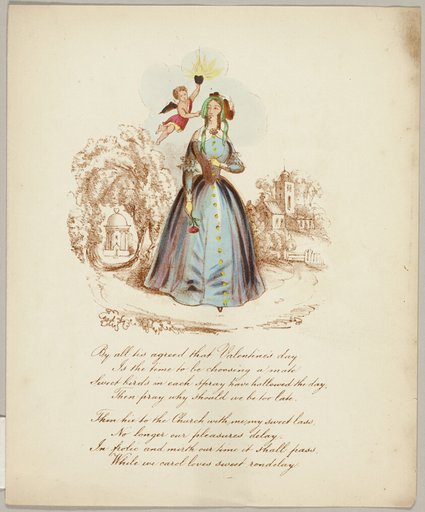 By all tis agreed that Valentines day
Is the time to be choosing a mate
Sweet birds on each spray have hallowed the day
Then pray why should we be too late.
Then hie to the Church with me my sweet lass
No longer our pleasures delay.
In frolic and mirth our time it shall pass
While we carol loves sweet rondelay.